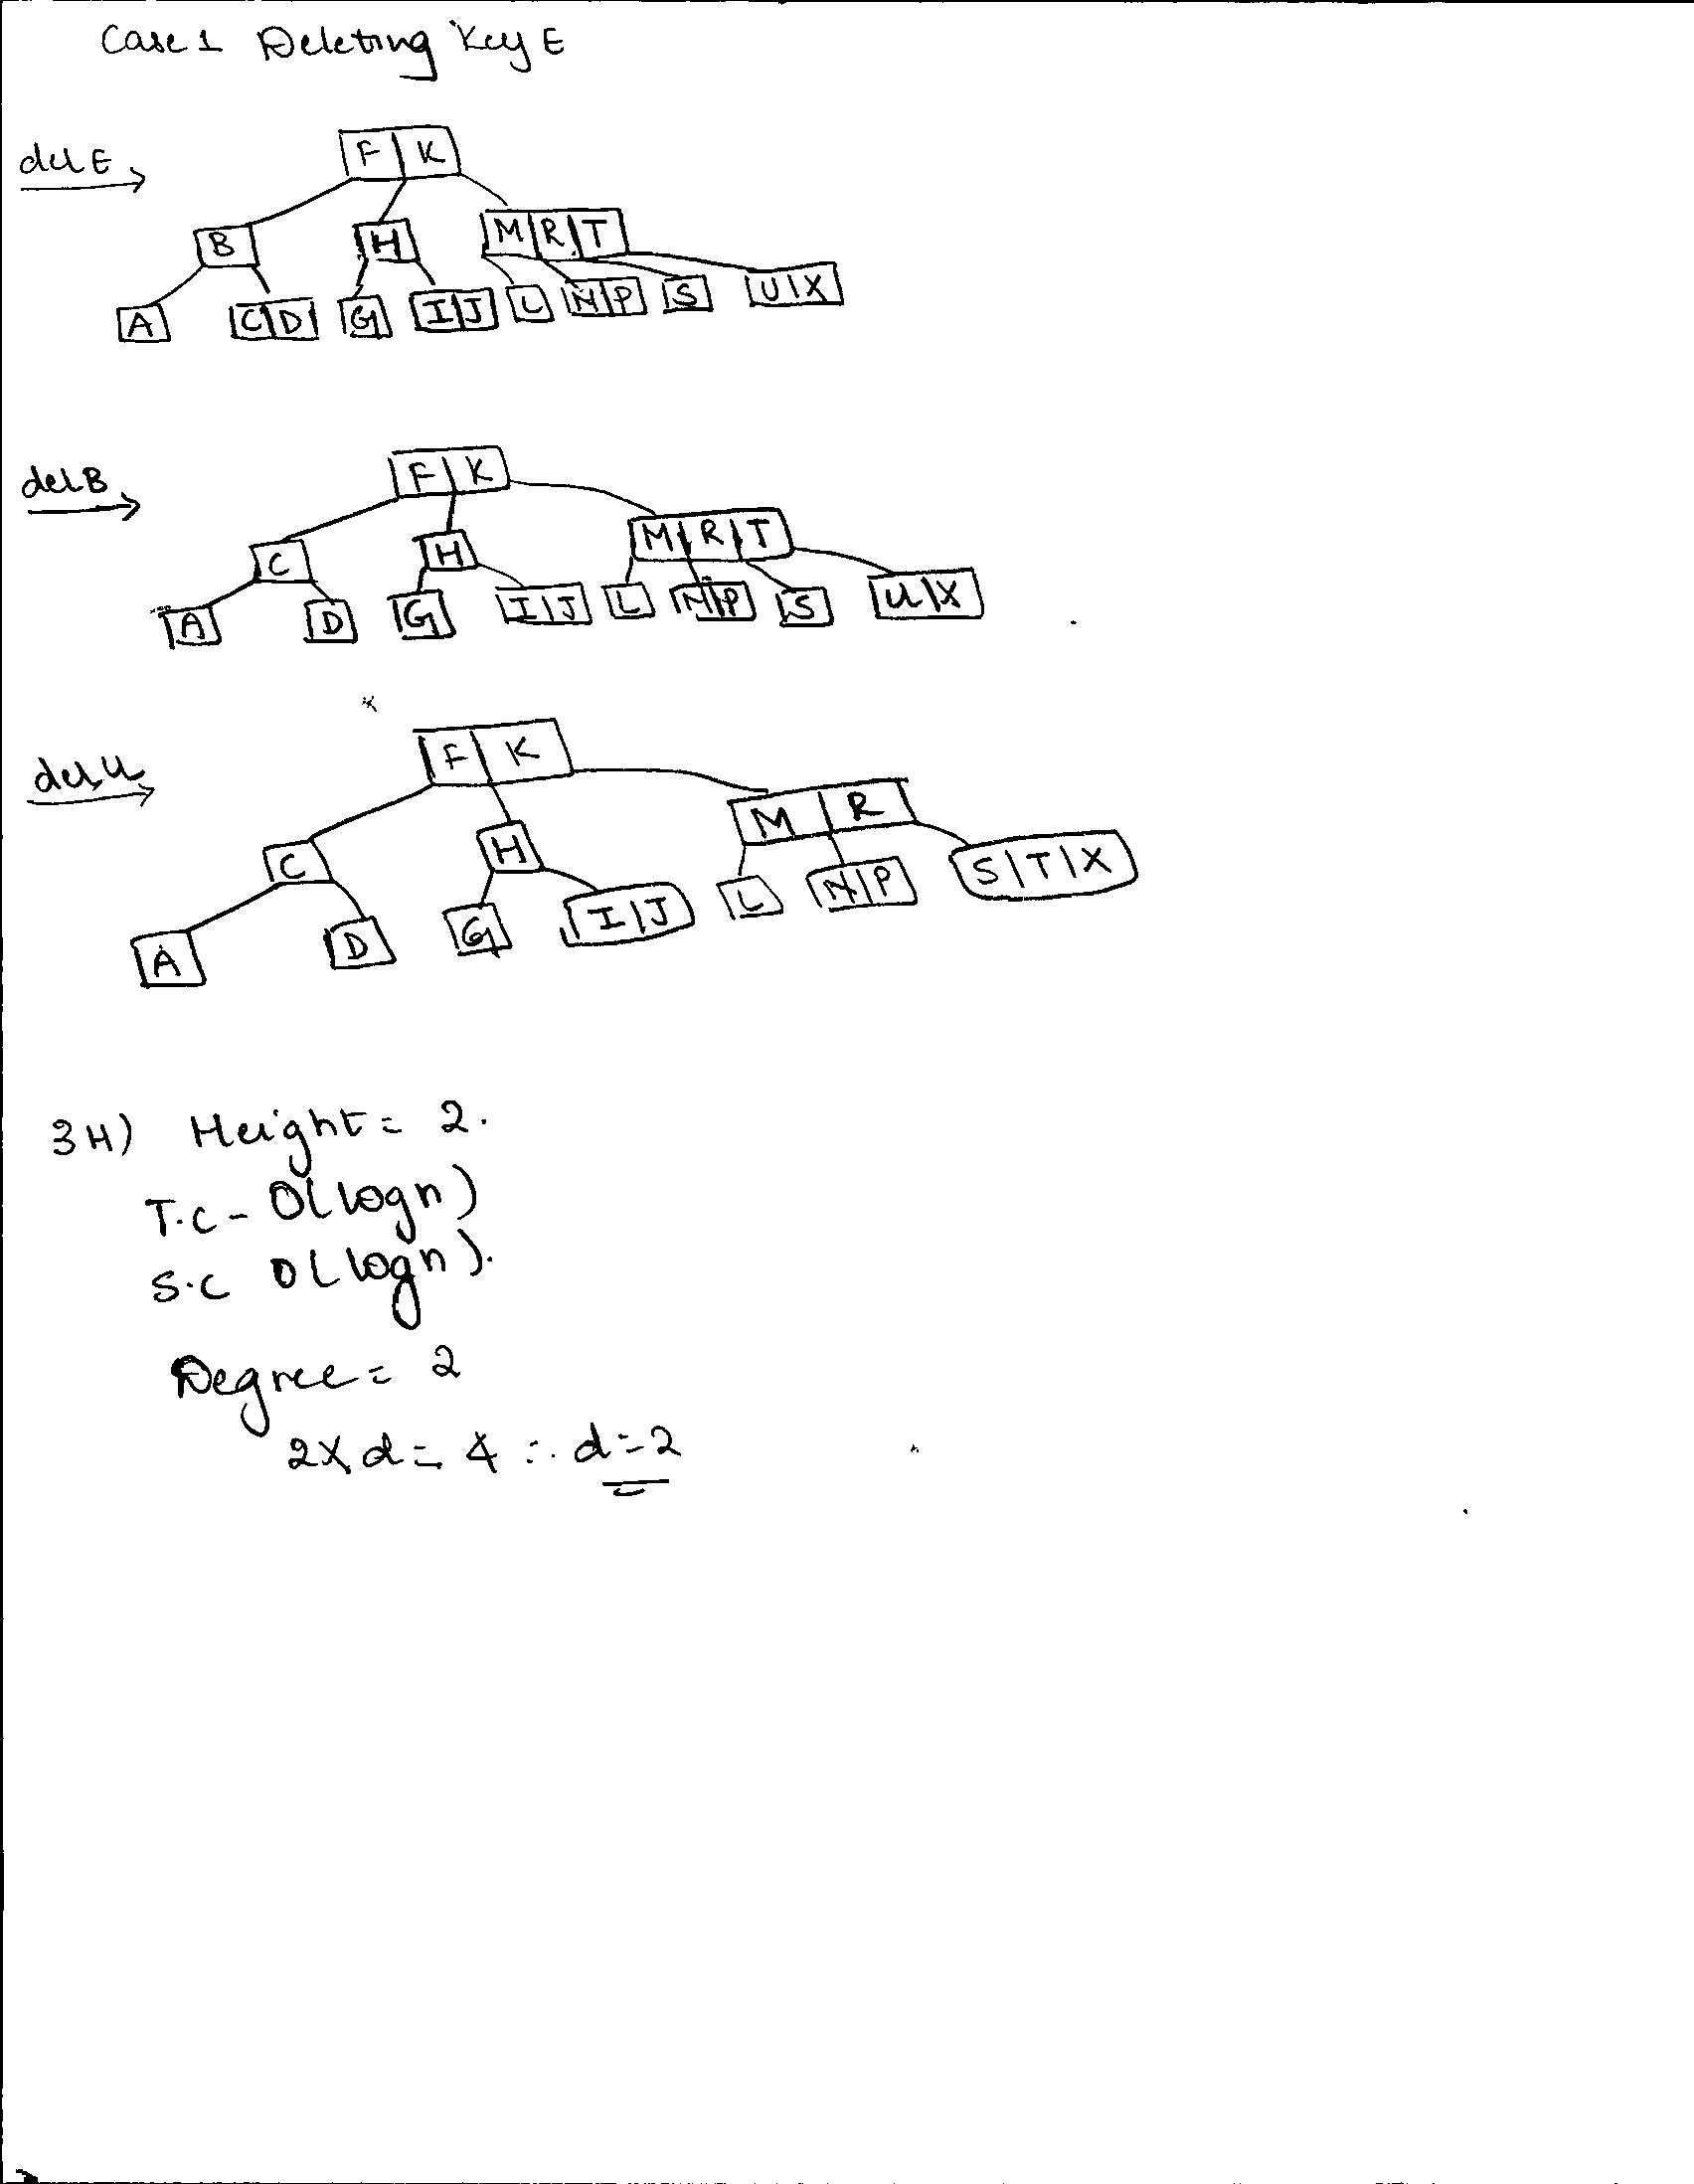 Case 1 Deleting Key E
del E
F K
B H M R T
A C D G I J L N P S U X
del B
F K
C H M R T
A D G I J L N P S U X
del U
F K
C H M R
A D G I J L N P S T X
3H) Height = 2.
T.C - O(logn)
S.C O(logn).
Degree = 2
2 x d = 4 ∴ d = 2